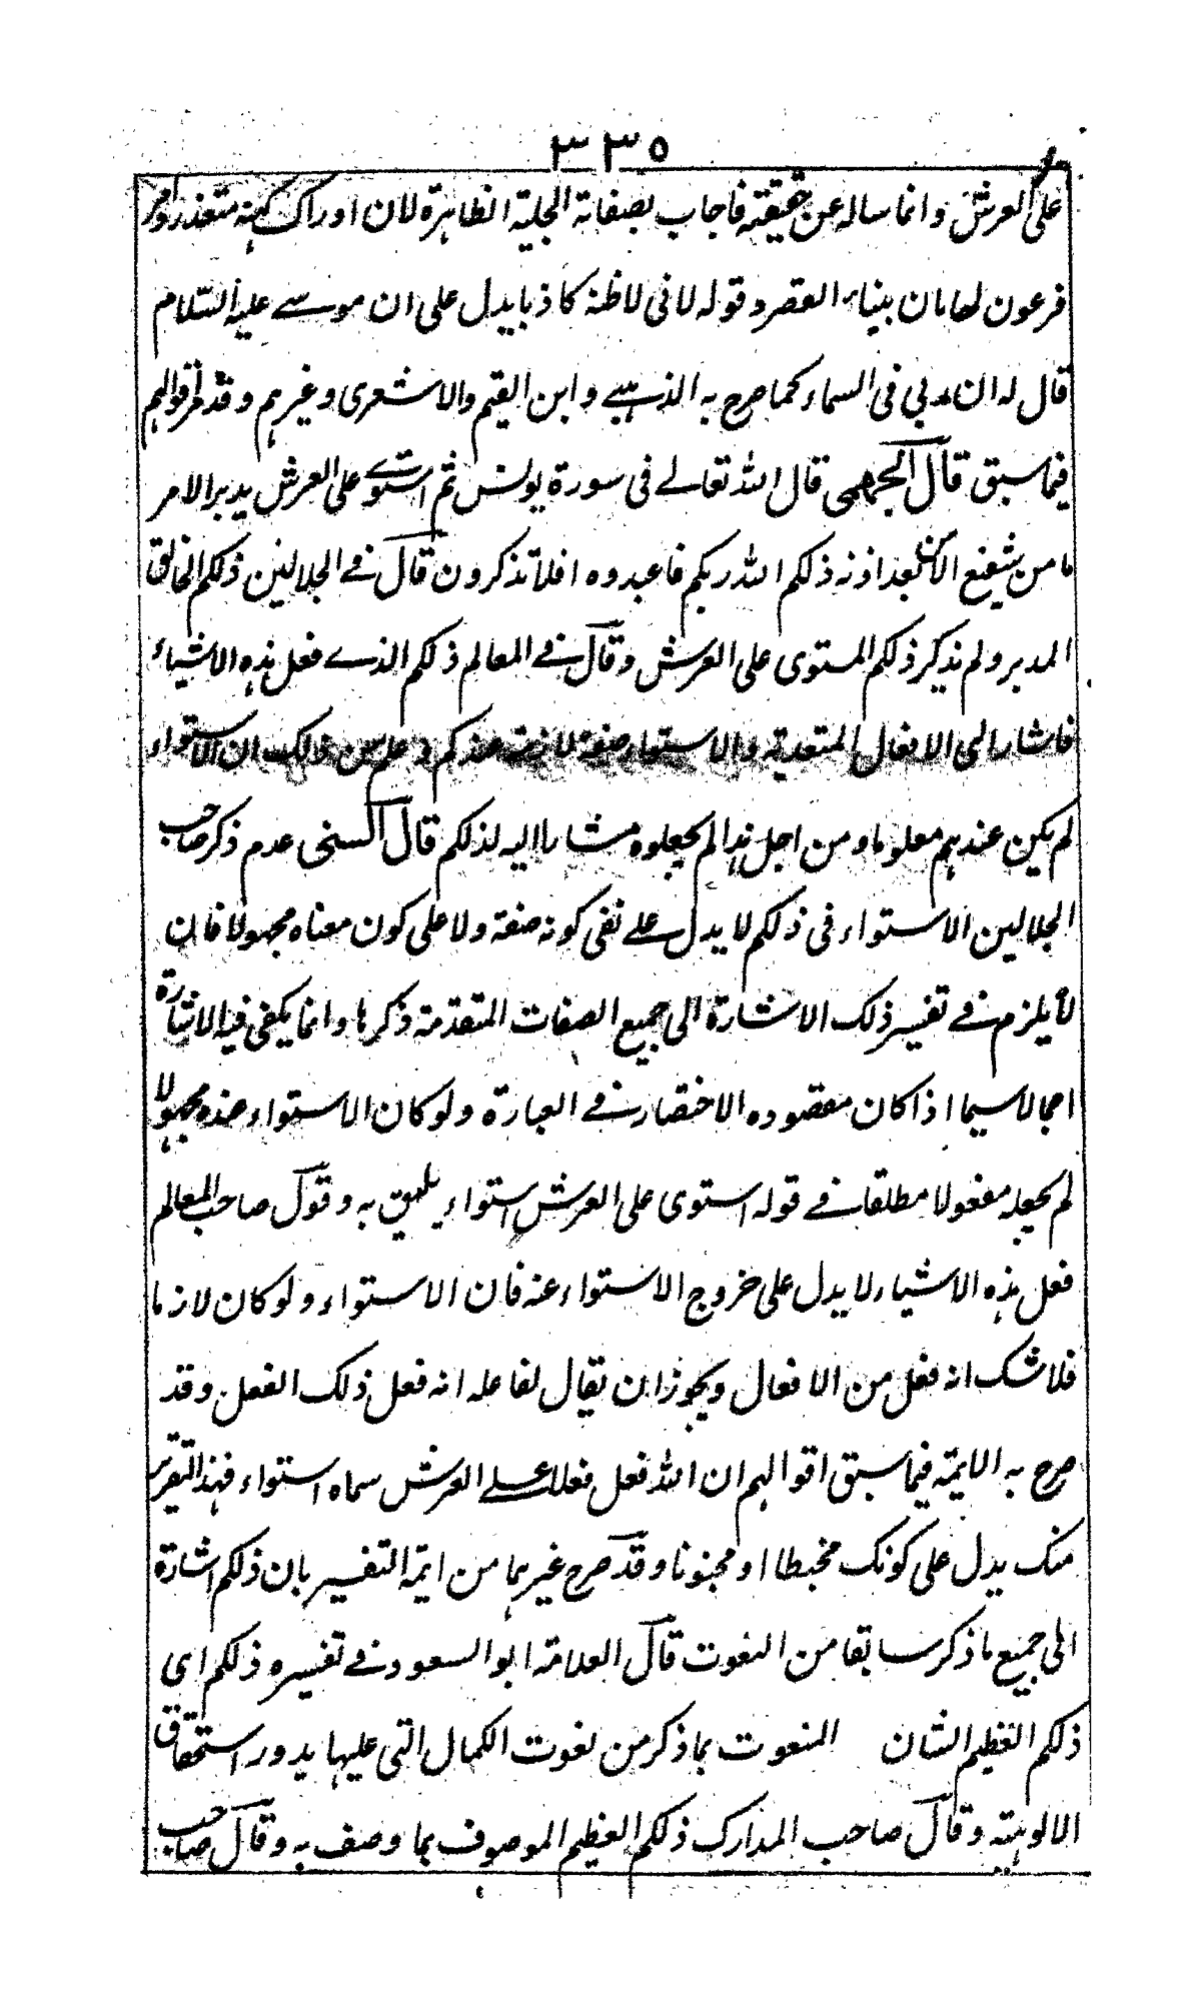 ٣٣٥
على العرش وانما ساله عن حقيقته فاجاب بصفاته الجلية الظاهرة لان ادراك كنهه متعذر وامر
فرعون لهامان ببناء القصر وقوله لانى لاظنه كاذبا يدل على ان موسى عليه السلام
قال له ان ربي فى السماء كما صرح به الذهبي وابن القيم والاشعرى وغيرهم وقد مر اقوالهم
فيما سبق قال الجهمى قال الله تعالى فى سورة يونس ثم استوى على العرش يدبر الامر
ما من شفيع الا من بعد اذنه ذلكم الله ربكم فاعبدوه افلا تذكرون قال فى الجلالين ذلكم الخالق
المدبر ولم يذكر ذلكم المستوى على العرش وقال فى المعالم ذلكم الذى فعل هذه الاشياء
فاشار الى الافعال المتعدية والاستواء صفة لازمة عندكم وعلم من ذلك ان الاستواء
لم يكن عندهم معلوما ومن اجل هذا لم يجعلوه مشارا اليه لذلكم قال السنى عدم ذكر صاحب
الجلالين الاستواء فى ذلكم لا يدل على نفى كونه صفة ولا على كون معناه مجهولا فان
لا يلزم فى تفسير ذلك الاشارة الى جميع الصفات المتقدمة ذكرها وانما يكفى فيه الاشارة
اجمالا سيما اذا كان مقصوده الاختصار فى العبارة ولو كان الاستواء عنده مجهولا
لم يجعله مفعولا مطلقا فى قوله استوى على العرش استواء يليق به وقول صاحب المعالم
فعل هذه الاشياء لا يدل على خروج الاستواء عنه فان الاستواء ولو كان لازما
فلا شك انه فعل من الافعال ويجوز ان يقال لفاعله انه فعل ذلك الفعل وقد
صرح به الايمة فيما سبق اقوالهم ان الله فعل فعلا على العرش سماه استواء فهذا التقرير
منك يدل على كونك مخبطا او مجنونا وقد صرح غيرهما من ايمة التفسير بان ذلكم اشارة
الى جميع ما ذكر سابقا من النعوت قال العلامة ابو السعود فى تفسيره ذلكم اى
ذلكم العظيم الشان المنعوت بما ذكر من نعوت الكمال التى عليها يدور استحقاق
الالوهية وقال صاحب المدارك ذلكم العظيم الموصوف بما وصف به وقال صاحب